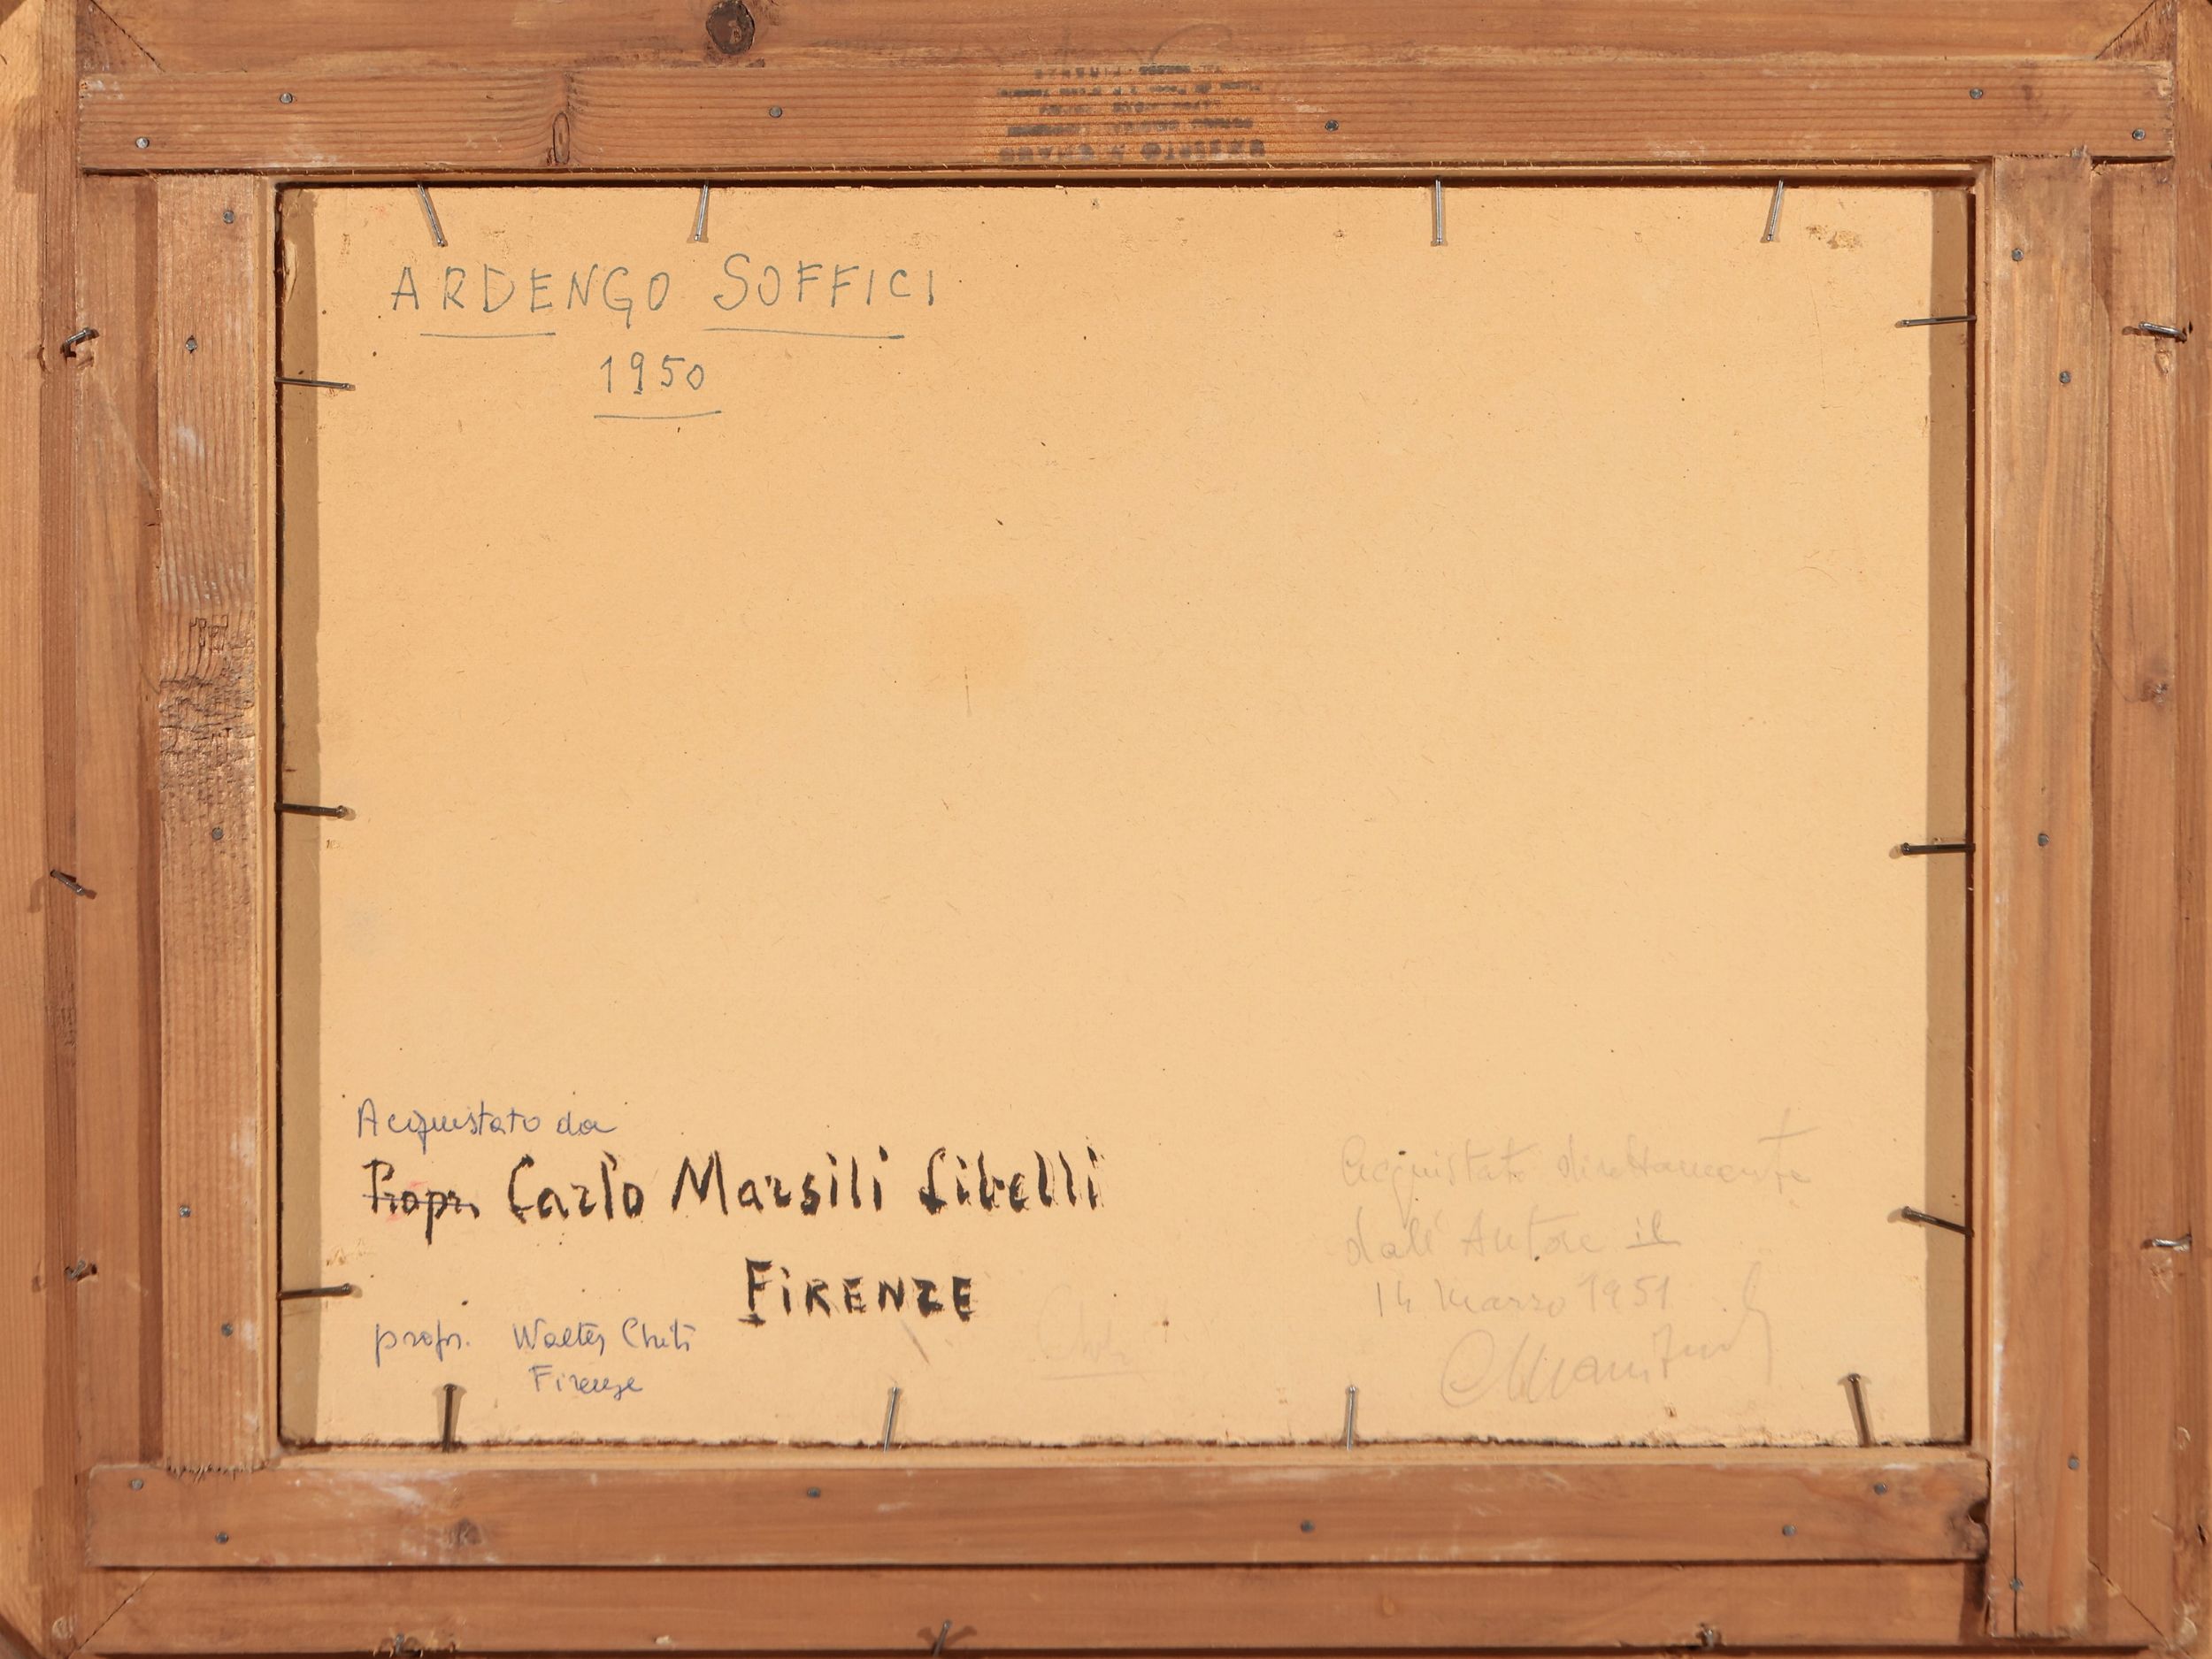 ARDENGO SOFFICI
1950
Acquistato da
Propr. Carlo Marsili Libelli
FIRENZE
propr. Walter Cheti
Firenze
Acquistato direttamente
dall' Autore il
14 Marzo 1951